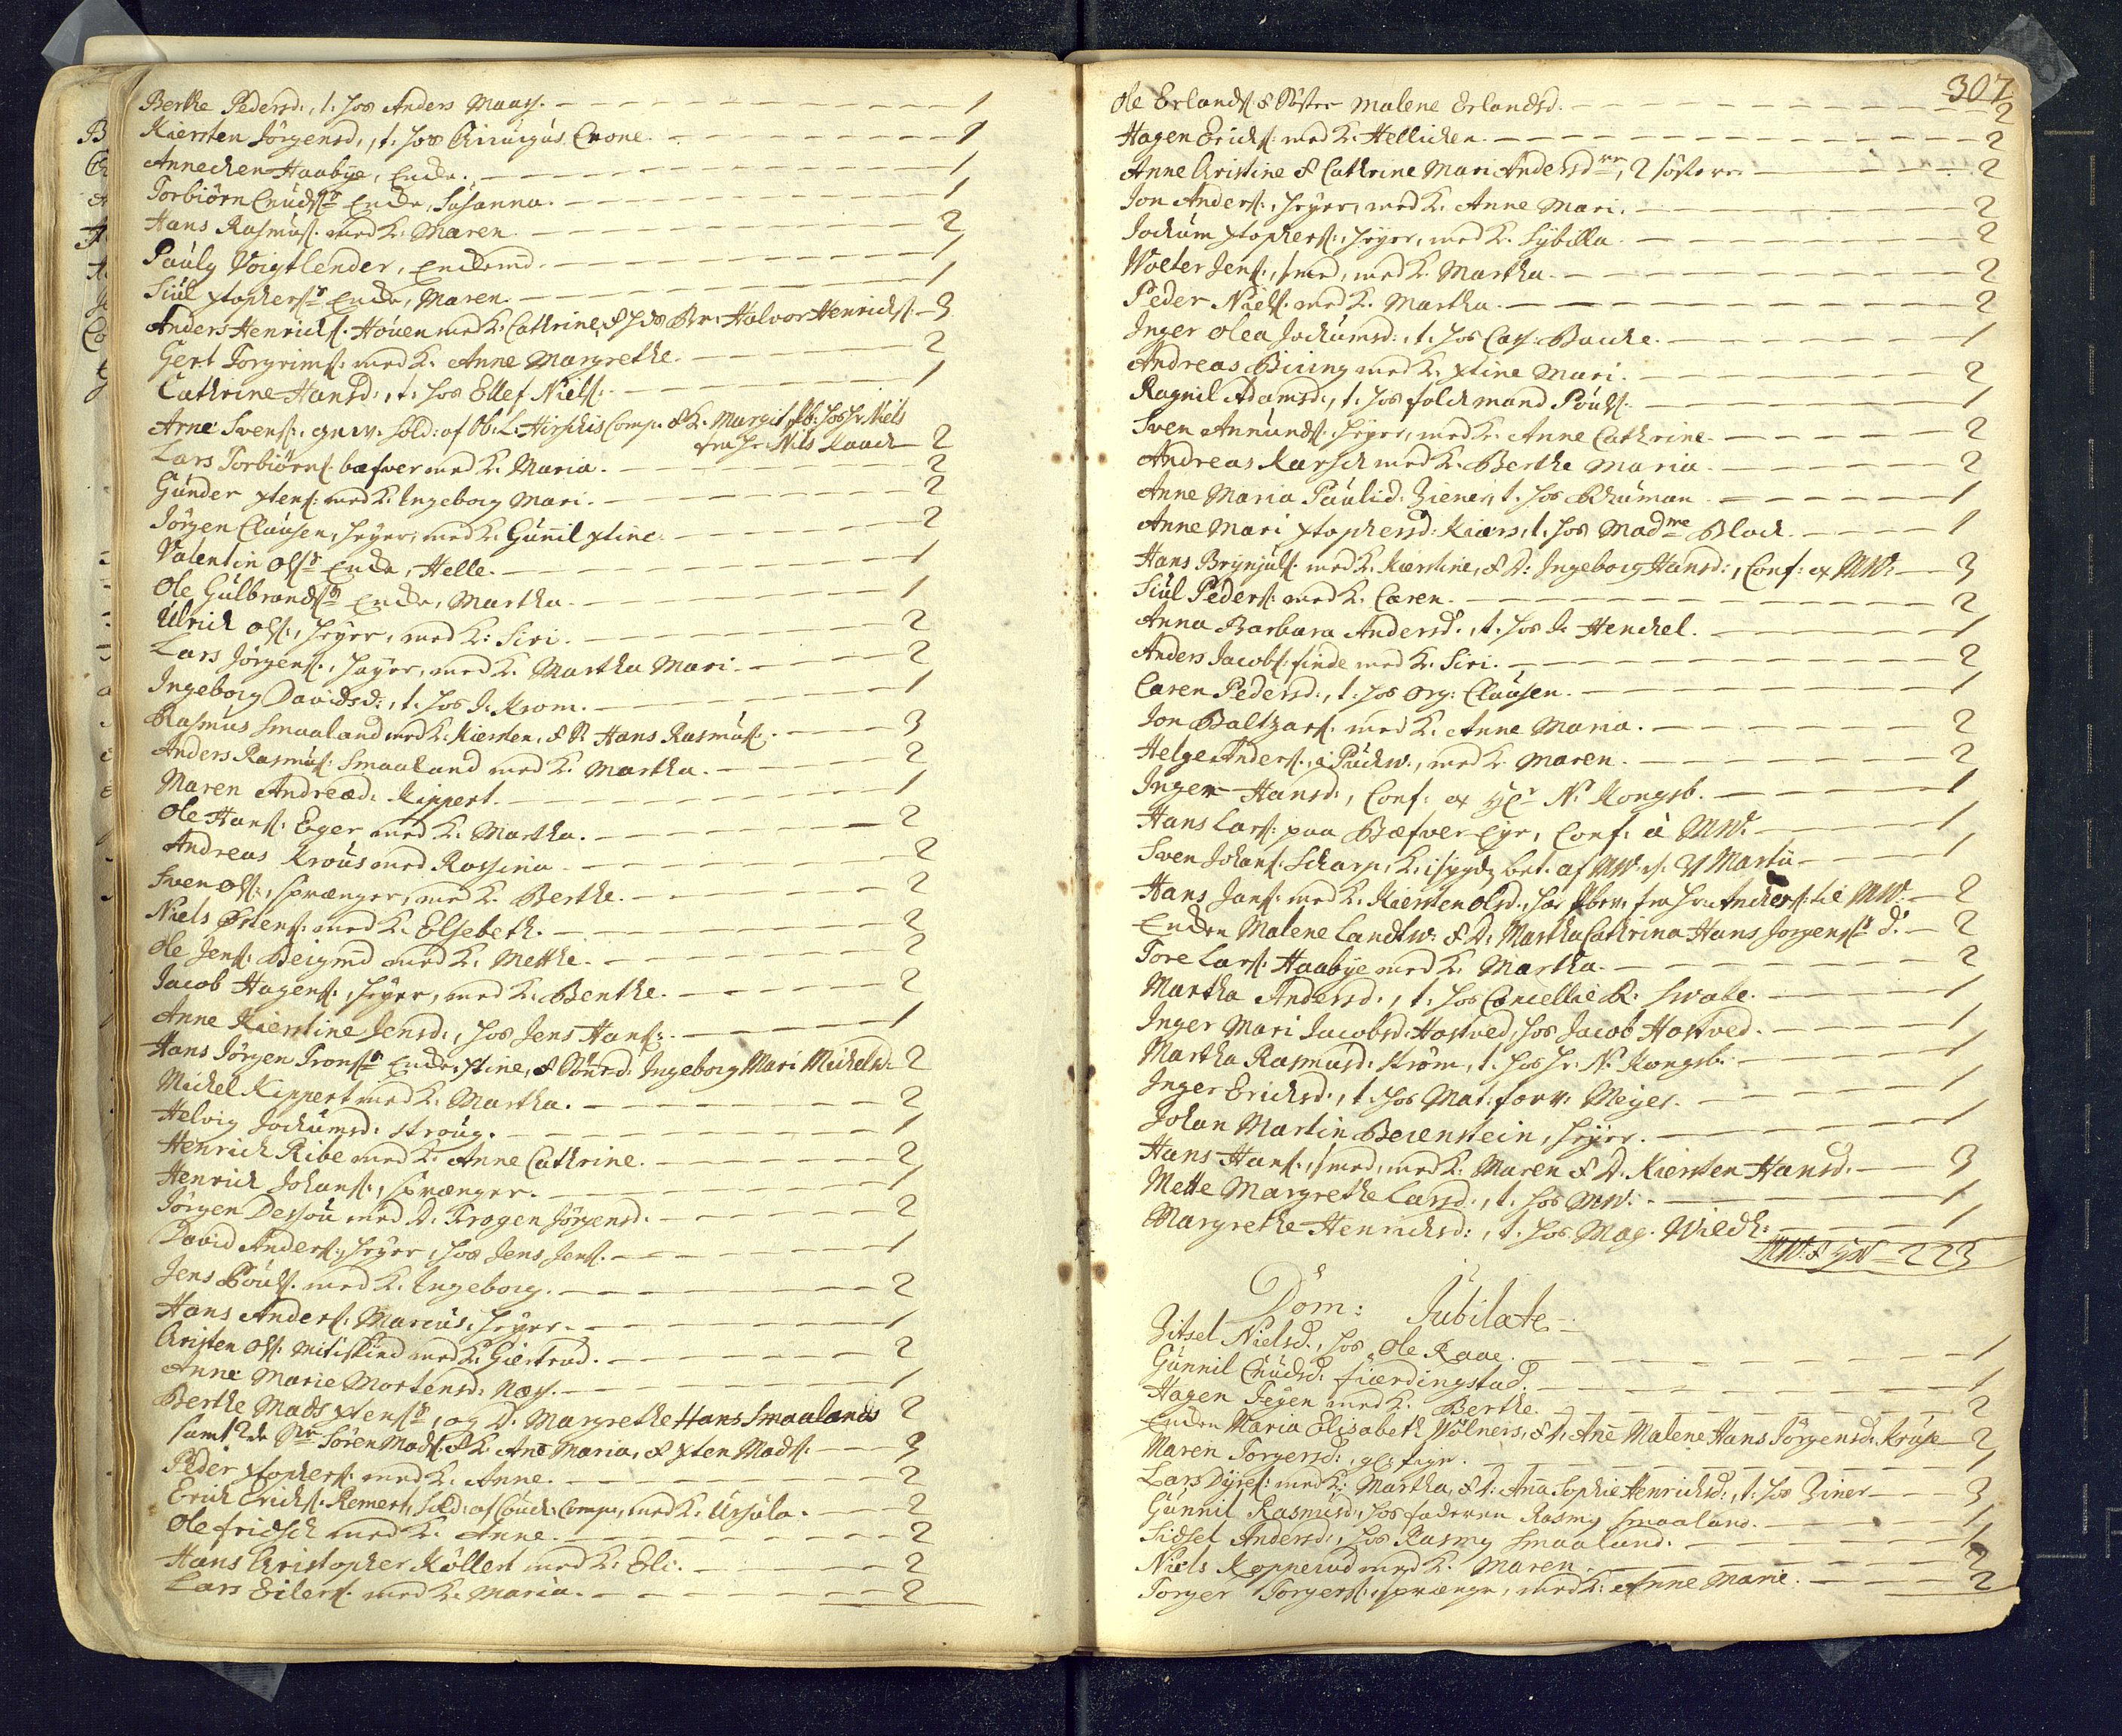 Berthe Pedersd:, t. hos Anders Maass. 1
Kiersten Jörgensd:, t. hos Chirurgus Crone. 1
Annechen Haabye, Encke. 1
Torbiörn Cnuds: Encke, Susanna. 1
Hans Rasmus: med K. Maren 2
Pauly Voigtlender, Enckemd. 1
Siul xtophers: Encke, Maren. 1
Anders Henrichs. Houen med K: Cathrine, & hds Br: Halvor Henrichs: 3
Gert Torgrims: med K: Anne Margrethe. 2
Cathrine Hansd:, t: hos Ellef Niels: 1
Arne Svens:, gev. Sold: af Ob: L: Hirschis Comp. & K. Margit hos Hr Niels
fra Hr: Nils Raach 2
Lars Torbiörns. bæfver med K. Maria. 2
Gunder xtens: med K. Ingeborg Mari. 2
Jörgen Clausen, heyer, med K. Gunnil xtine. 2
Valentin Ols: Encke, Helle. 1
Ole Gulbrands: Encke, Martha. 1
Ulrich Ols:, heyer, med K: Siri. 2
Lars Jörgens., heyer, med K. Martha Mari. 2
Ingeborg Davidsd:, t. hos J. Krom. 1
Rasmus Smaaland med K. Kiersten, & S. Hans Rasmus:. 3
Anders Rasmus: Smaaland med K. Martha. 2
Maren Andread: Kippert. 1
Ole Hans: Eger med K. Martha. 2
Andreas Krous med Rossina 2
Sven Ols:, sprænger, med K. Berthe. 2
Niels Örens: med K. Elsebeth. 2
Ole Jens: Beigmd med K. Mette. 2
Jacob Hagens:, heyer, med K. Benthe. 2
Anne Kierstine Jensd:, hos Jens Hans: 1
Hans Jörgen Prons: Encke, xtine, & Ingeborg Mari Michelsd. 2
Michel Kippert med K. Martha. 2
Helvig Jochumsd: Stroug. 1
Henrich Ribe med K. Anne Cathrine. 2
Henrich Johans:, sprænger. 1
Jörgen Dessou med D. Frogen Jörgensd. 2
David Anders:, heyer, hos Jens Jens. 1
Jens Pouls. med K. Ingeborg. 2
Hans Anders: Marcus, heyer. 1
Christen Ols. Mitiskind med K: Giertrud. 2
Anne Marie Mortensd: Næss. 1
Berthe Mads xtens:, og D. Margrethe Hans Smaalands 2
samt 2de Sören Mads: & K. Ane Maria, & xten Mads: 3
Peder xtophers: med K. Anne. 2
Erich Erichs. Remert, Sold: af Comp:, med K. Ursula. 2
Ole fridsch med K. Anne. 2
Hans Christopher Köllert med K: Eli. 2
Lars Eilers. med K. Maria. 2
307
Ole Erlands: & Söster Malene Erlandsd. 2
Hagen Erichs: med K. Hellichen. 2
Anne Christine & Cathrine Mari Andersd:, 2 söstere. 2
Jon Anders:, heyer, med K. Anne Mari. 2
Jochum xtophers:, heyer, med K. Sybilla. 2
Wolter Jens:, smed, med K. Martha. 2
Peder Niels. med K. Martha. 2
Inger Olea Jochumsd:, t. hos Cas: Bache. 1
Andreas Biring med K. xtine Mari. 2
Ragnil Adamsd:, t. hos folchmand Pouls. 1
Sven Amunds: heyer, med K. Anne Cathrine. 2
Andreas Karsch med K. Berthe Maria. 2
Anne Maria Paulid: Ziener, t. hos Schuman 1
Anne Mari xtophersd: Kiærs, t. hos Madme Bloch. 1
Hans Brynjuls: med K. Kierstine, & D: Ingeborg Hansd:, Conf: ex MW: 3
Siul Peders: med K. Caren. 2
Anna Barbara Andersd:, t. hos J. Henchel. 1
Anders Jacobs: finde med K. Siri. 2
Caren Pedersd:, t. hos Org: Clausen. 1
Jon Baltzars: med K. Anne Maria. 2
Helge Anders:, i Puchw., med K. Maren. 2
Inger Hansd:, Conf: ex N. Kongsb. 1
Hans Lars: paa Bæfver Eye, Conf: à MW: 1
Sven Johans: Scharp, af MW. 21 Martii 1
Hans Jans: med K. Kiersten Olsd., fra Hr: Anchers: til MW: 2
Encken Malene Landtw: & D: Martha Cathrina Hans Jörgens: D. 2
Tore Lars: Haabye med K. Martha. 2
Martha Andersd., t. hos Cancellie R. Swabe. 1
Inger Mari Jacobsd: Hostved, hos Jacob Hostved. 1
Martha Rasmusd: Ström, t. hos Hr: N. Kongsb: 1
Inger Erichsd:, t. hos Mat: forv: Meyer. 1
Johan Martin Beienstein, heyer. 1
Hans Hans:, smed, med K: Maren & D. Kiersten Hansd. 3
Mette Margrethe Larsd:, t. hos MW: 1
Margrethe Henrichsd:, t. hos Mag. Wildh: 1
MW. & 223
Dom: Jubilate
Zitsel Nielsd., hos Ole Raae. 1
Gunnil Cnudsd: fiærdingstad. 1
Hagen Teyen med K. Berthe 2
Encken Maria Elisabeth Wölners, & D. Ane Malene Hans Jörgensd. Kruse 2
Maren Torgersd:, 1
Lars Dyres: med K: Martha, & D: Ana Sophie Henrichsd:, t. hos Ziner 3
Gunnil Rasmusd:, hos faderen Rasmg Smaaland. 1
Sidsel Andersd:, hos Rasmg Smaaland. 1
Niels Kopperud med K. Maren 2
Torger Torgers: sprænger, med K. Anne Marie. 2